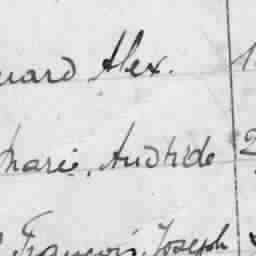 uard Alex. 1
Marie, Audride 2
François, Joseph